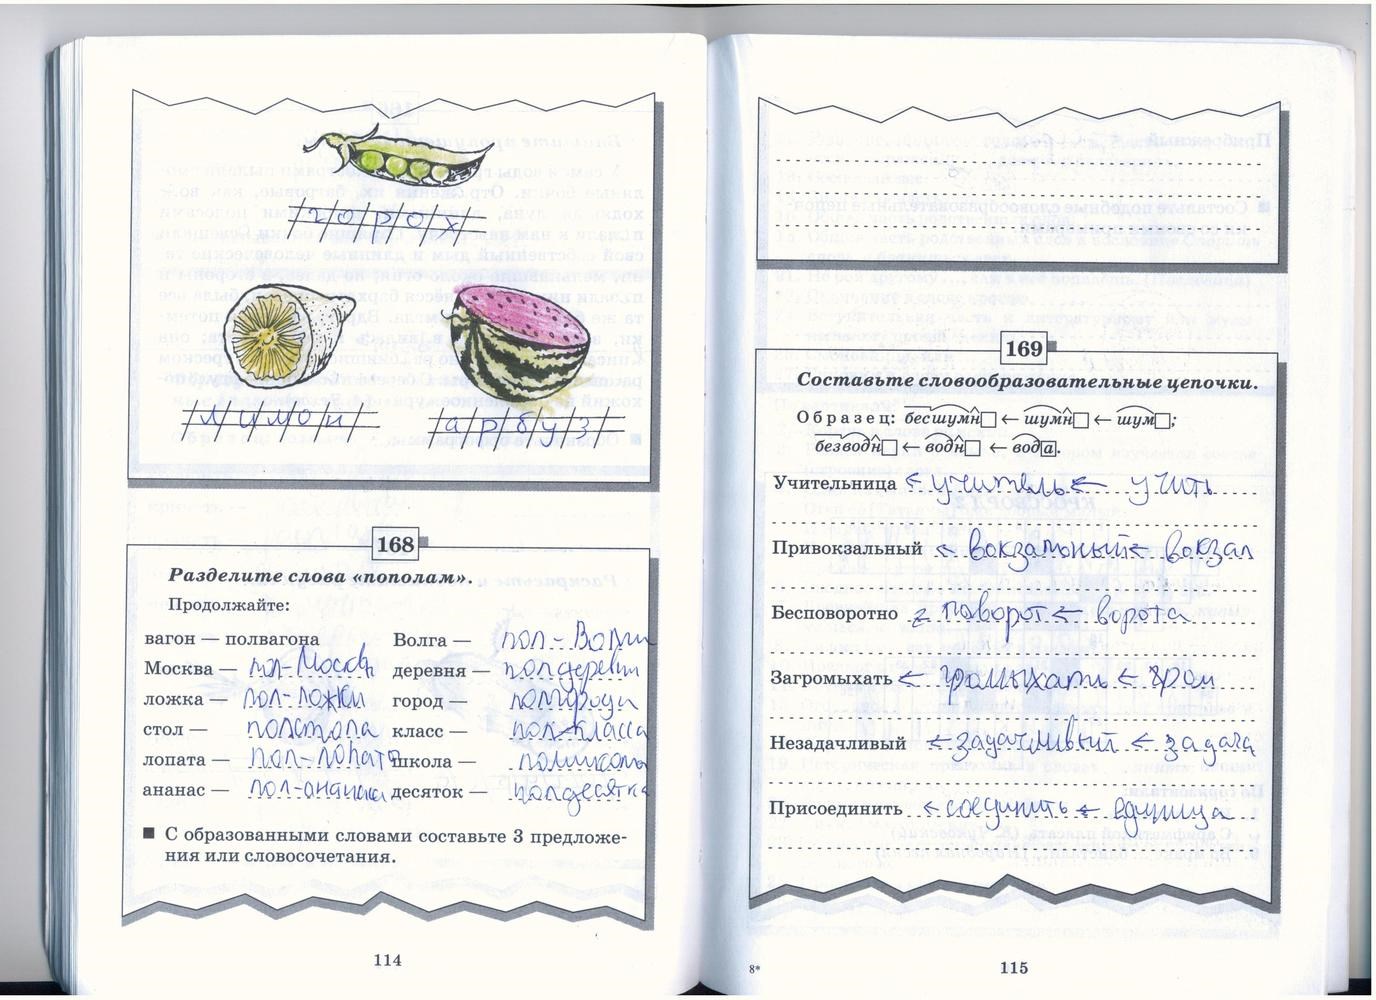 горох
лимон
арбуз
168
Разделите слова «пополам».
Продолжайте:
вагон — полвагона
Волга — пол-Волги
Москва — пол-Москвы
деревня — полдеревни
ложка — пол-ложки
город — полгорода
стол — полстола
класс — полкласса
лопата — пол-лопаты
школа — полшколы
ананас — пол-ананаса
десяток — полдесятка
■ С образованными словами составьте 3 предложе-
ния или словосочетания.
114
169
Составьте словообразовательные цепочки.
Образец: бесшумн ← шумн ← шум;
безводн ← водн ← вода.
Учительница ← учитель ← учить
Привокзальный ← вокзальный ← вокзал
Бесповоротно ← поворот ← ворота
Загромыхать ← громыхать ← гром
Незадачливый ← задачливый ← задача
Присоединить ← соединить ← единица
8*
115